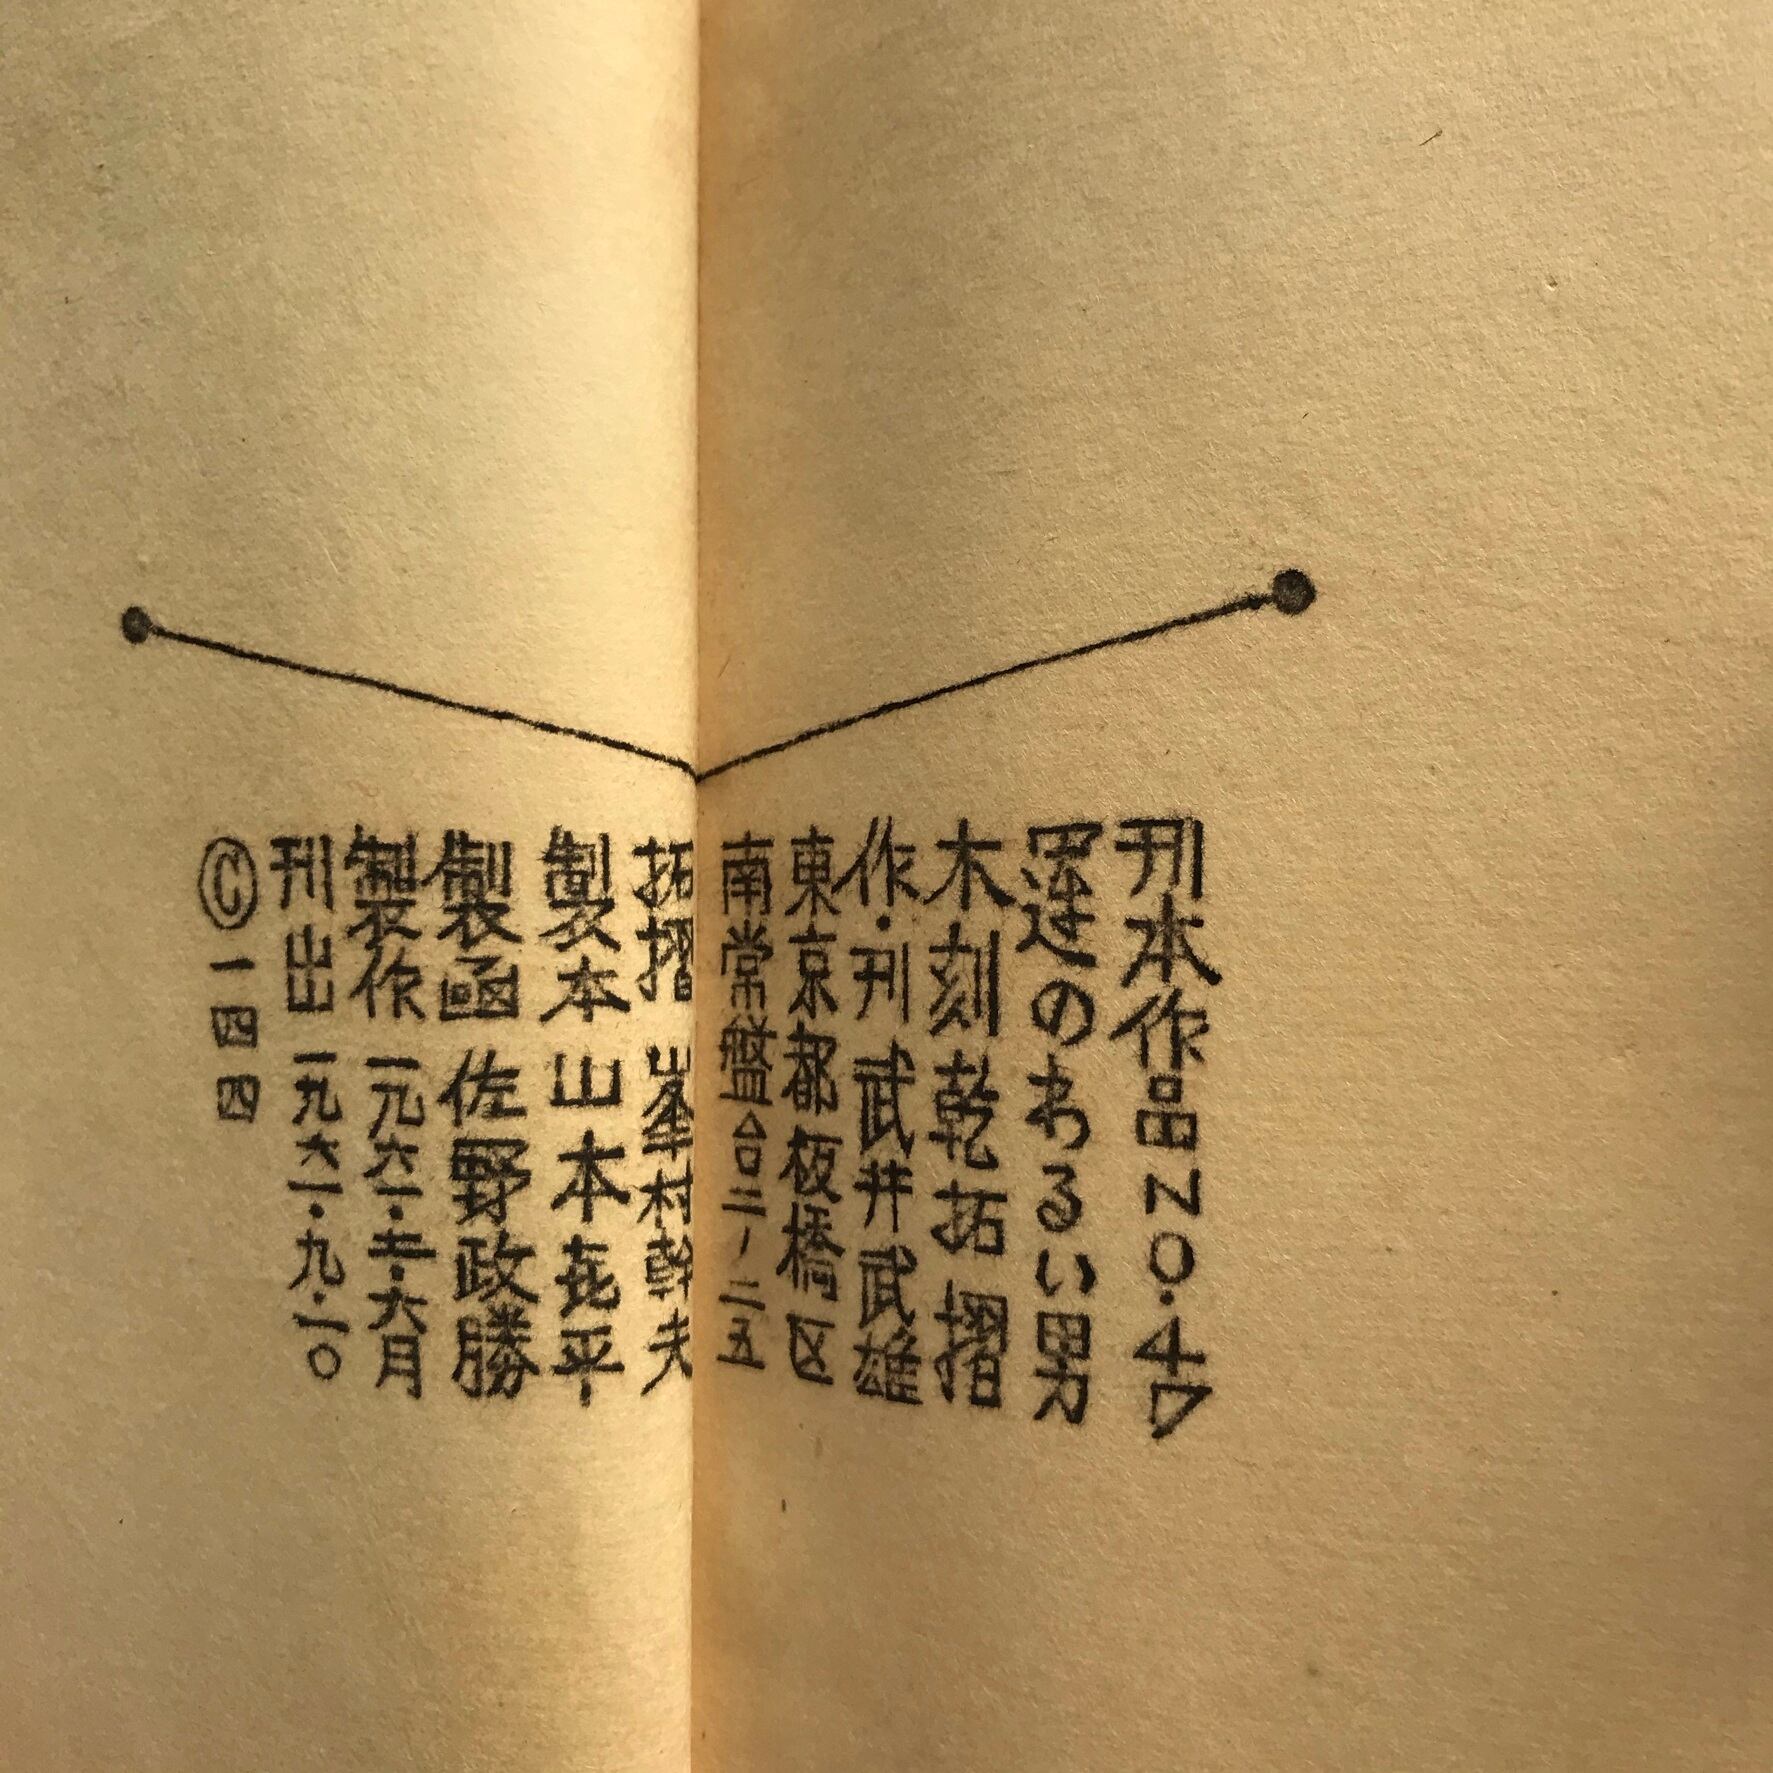 刊本作品NO・47
運のわるい男
木刻乾拓摺
作・刊 武井武雄
東京都板橋区
南常盤台二ノ二五
拓摺 峯村幹夫
製本 山本㐂平
製函 佐野政勝
製作 一九六一・五・六月
刊出 一九六一・九・一〇
Ⓒ一四四